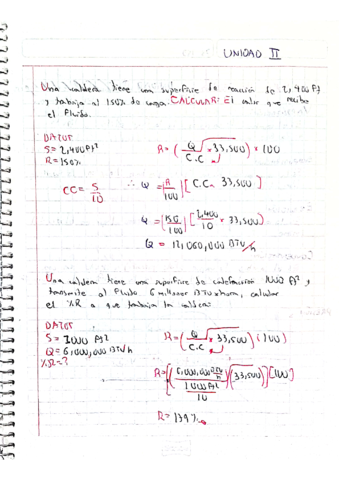 UNIDAD II
Una caldera tiene una superficie de de 2,400 ft²
y trabaja al 150% de carga. CALCULAR: El calor que recibe
el fluido.
DATOS
S= 2,400 ft²
R= 150%
CC = S/10
R = (Q / C.C × 33,500) × 100
∴ Q = |R/100| [C.C. 33,500]
Q = |150/100| [2,400/10 × 33,500]
Q = 12,060,000 BTU/h
Una caldera tiene una superficie de calefaccion 1000 ft²,
transmite al fluido 6 millones BTU x hora, calcular
el %R a que trabaja la caldera:
DATOS
S= 1000 ft²
Q= 6,000,000 BTU/h
%R=?
R = (Q / C.C × 33,500) (100)
R = [(6,000,000 BTU/h / 1000 ft²/10) (33,500)] [100]
R= 179%